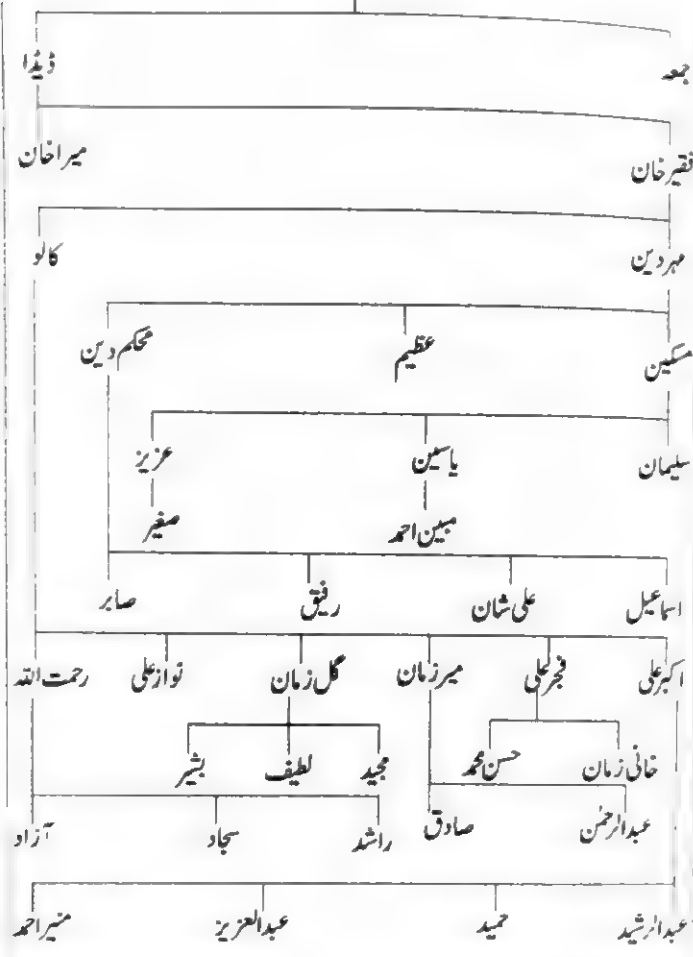 جمعہ ڈیڈا
فقیر خان میرا خان
مہر دین کالو
مسکین عظیم محکم دین
سلیمان یاسین عزیز
مبین احمد صغیر
اسماعیل علی شان رفیق صابر
اکبر علی فجر علی میر زمان گل زمان نواز علی رحمت اللہ
خانی زمان حسن محمد مجید لطیف بشیر
عبدالرحمٰن صادق راشد سجاد آزاد
عبدالرشید حمید عبدالعزیز منیر احمد